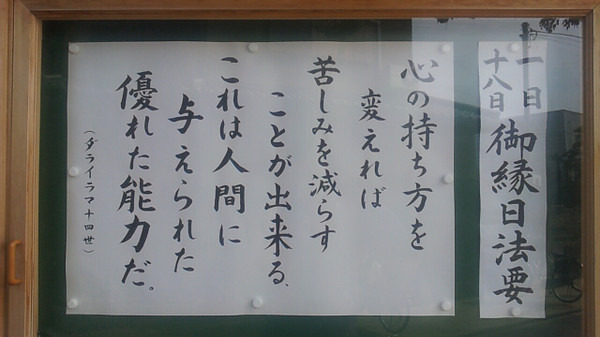 一日
十八日
御縁日法要
心の持ち方を
変えれば
苦しみを減らす
ことが出来る、
これは人間に
与えられた
優れた能力だ。
（ダライラマ十四世）